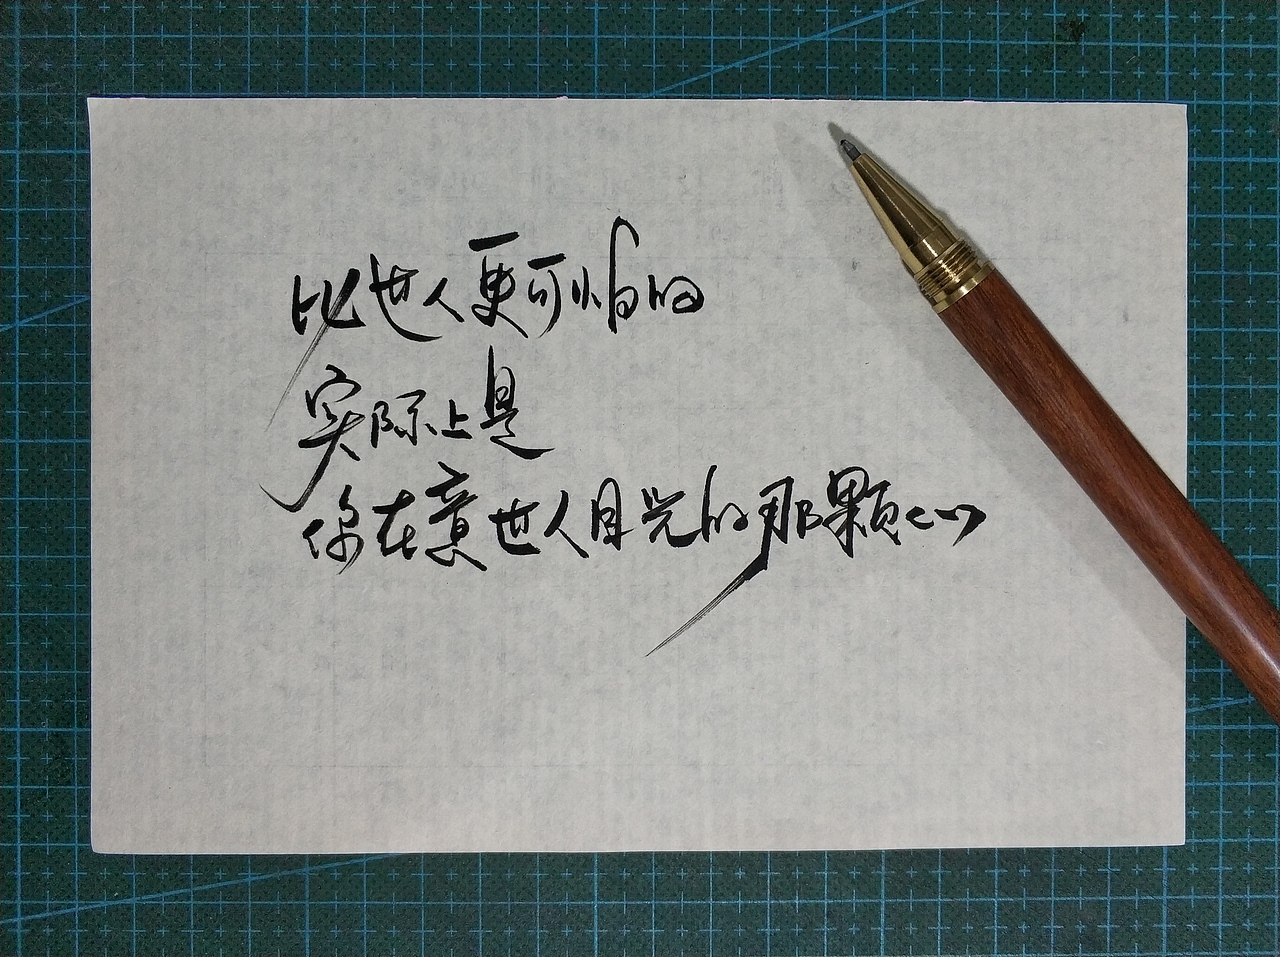 比世人更可怕的
实际上是
你在意世人目光的那颗心